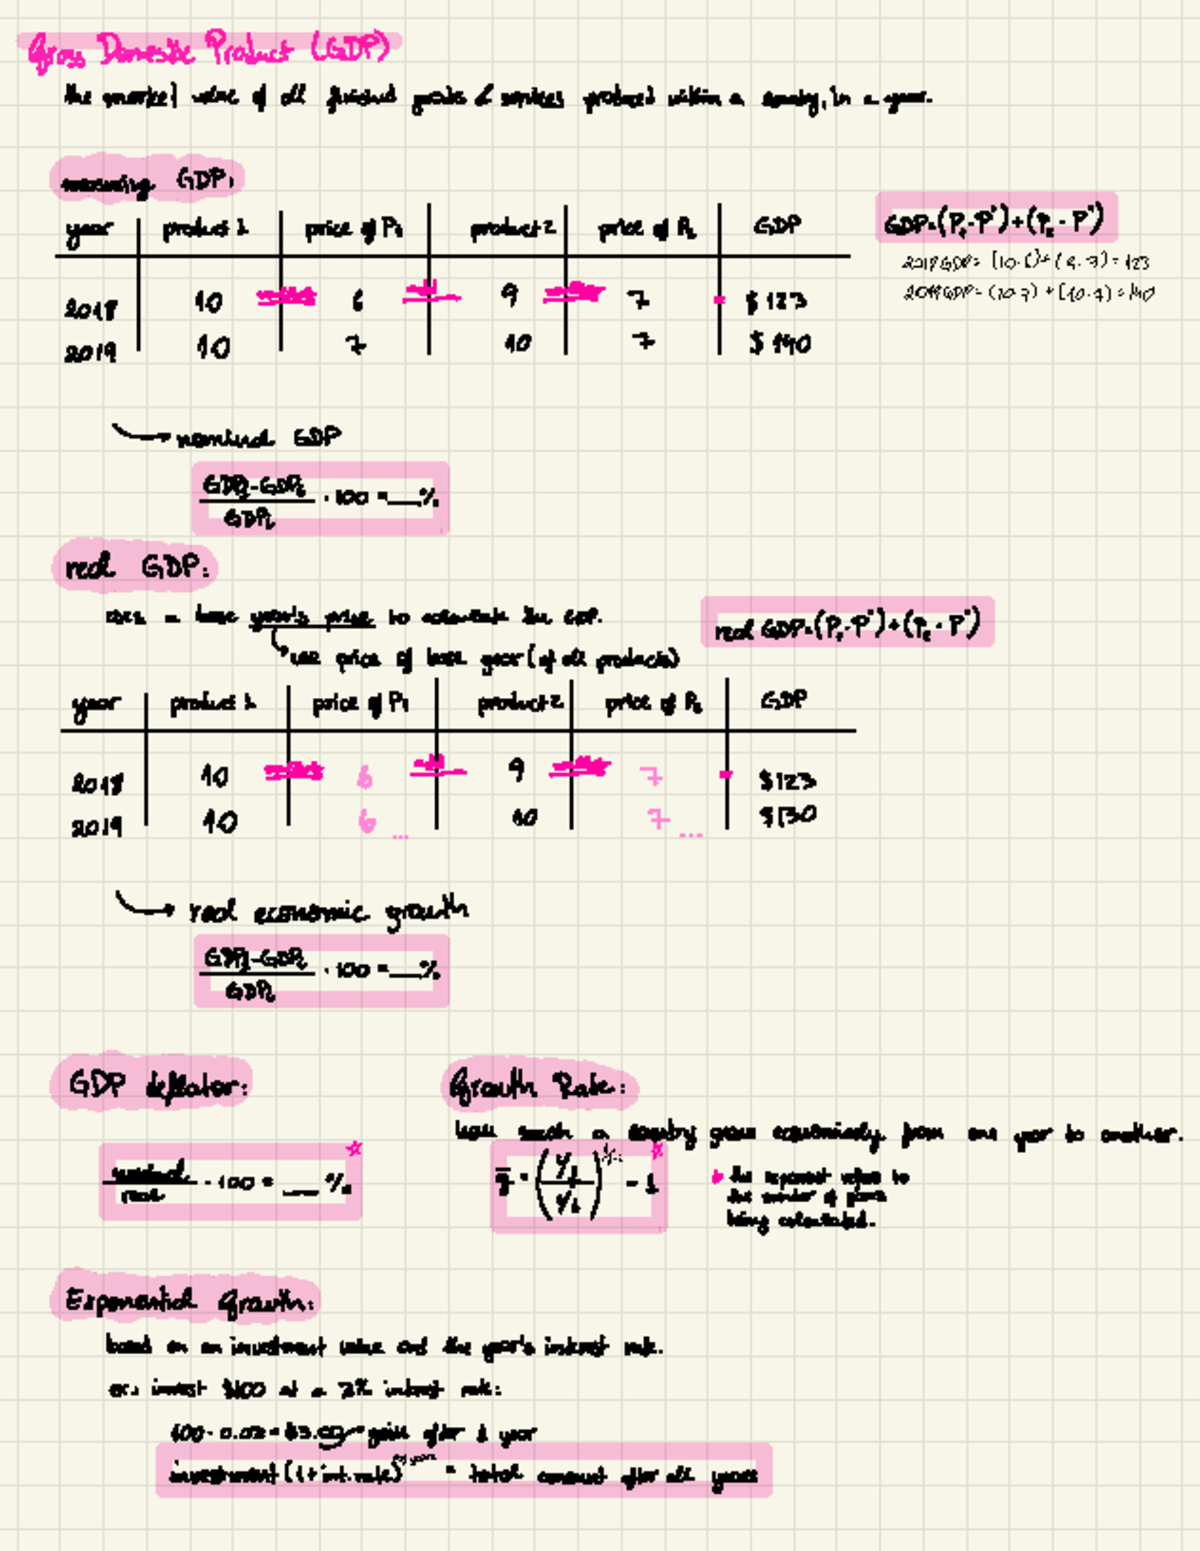 Gross Domestic Product (GDP)
the market value of all finished goods & services produced within a country, in a year.
measuring GDP:
year product 1 price of P₁ product 2 price of P₂ GDP
2018 10 6 9 7 $123
2019 10 7 10 7 $140
GDP=(P₁·P°)+(P₂·P°)
2018GDP= (10·6)+(9·7)=123
2019GDP=(10·7)+(10·7)=140
nominal GDP
GDP₂-GDP₁
GDP₁
·100=__%
real GDP:
uses a base year's price to calculate the GDP.
use price of base year (of all products)
real GDP=(P₁·P°)+(P₂·P°)
year product 1 price of P₁ product 2 price of P₂ GDP
2018 10 6 9 7 $123
2019 10 6 ... 10 7 ... $130
real economic growth
GDP₂-GDP₁
GDP₁
·100=__%
GDP deflator:
nominal
real
·100=__%
Growth Rate:
how much a country grows economically from one year to another.
-1
the exponent refers to
the number of years
being calculated.
Exponential Growth:
based on an investment value and the year's interest rate.
ex: invest $100 at a 3% interest rate:
gain after 1 year
investment (1+int.rate) = total amount after all years